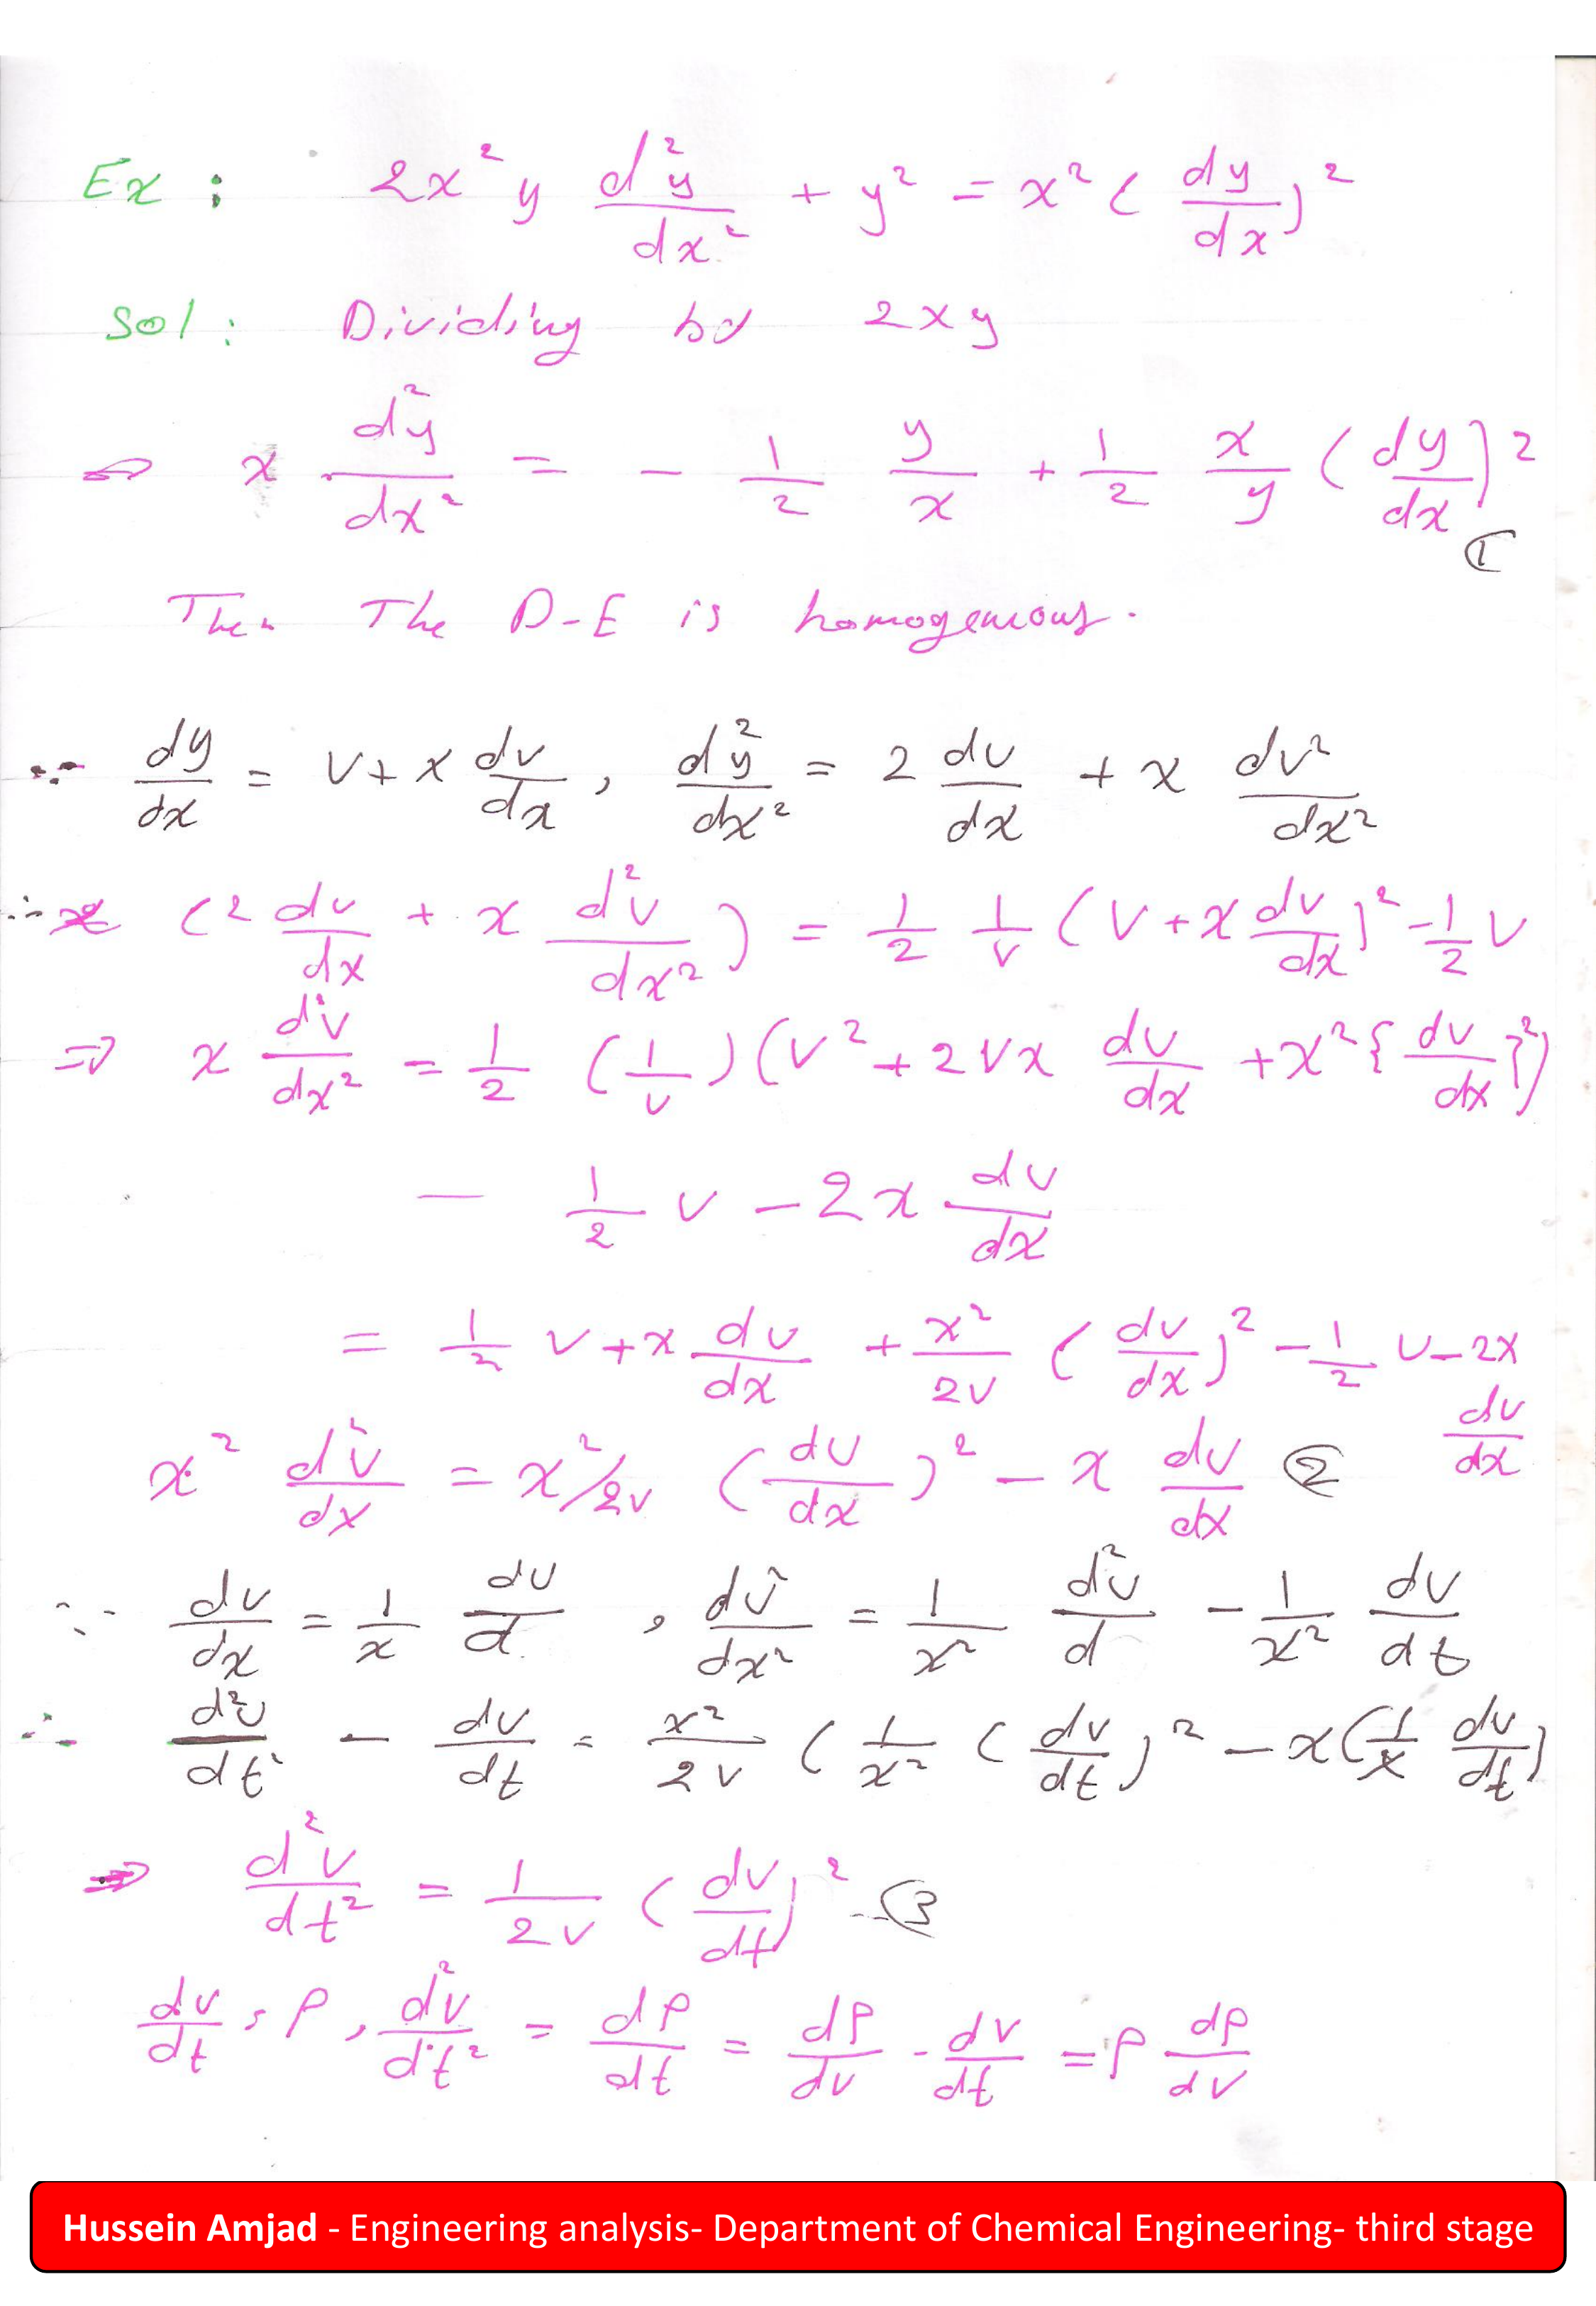 Ex : 2x² y d²y/dx² + y² = x² (dy/dx)²
Sol : Dividing by 2xy
⇒ x d²y/dx² = - 1/2 y/x + 1/2 x/y (dy/dx)² ①
Then The D-E is homogenuous.
∵ dy/dx = v + x dv/dx , d²y/dx² = 2 dv/dx + x dv²/dx²
∴ x (2 dv/dx + x d²v/dx²) = 1/2 1/v (v + x dv/dx)² - 1/2 v
⇒ x d²v/dx² = 1/2 (1/v) (v² + 2vx dv/dx + x² {dv/dx}²)
- 1/2 v - 2x dv/dx
= 1/2 v + x dv/dx + x²/2v (dv/dx)² - 1/2 v - 2x dv/dx
x² d²v/dx = x²/2v (dv/dx)² - x dv/dx ②
∵ dv/dx = 1/x dv/d , d²v/dx² = 1/x² d²v/d - 1/x² dv/dt
∴ d²v/dt² - dv/dt = x²/2v (1/x² (dv/dt)² - x(1/x dv/dt)
⇒ d²v/dt² = 1/2v (dv/dt)² -- ③
dv/dt = P , d²v/dt² = dP/dt = dP/dv - dv/dt = P dP/dv
Hussein Amjad - Engineering analysis- Department of Chemical Engineering- third stage